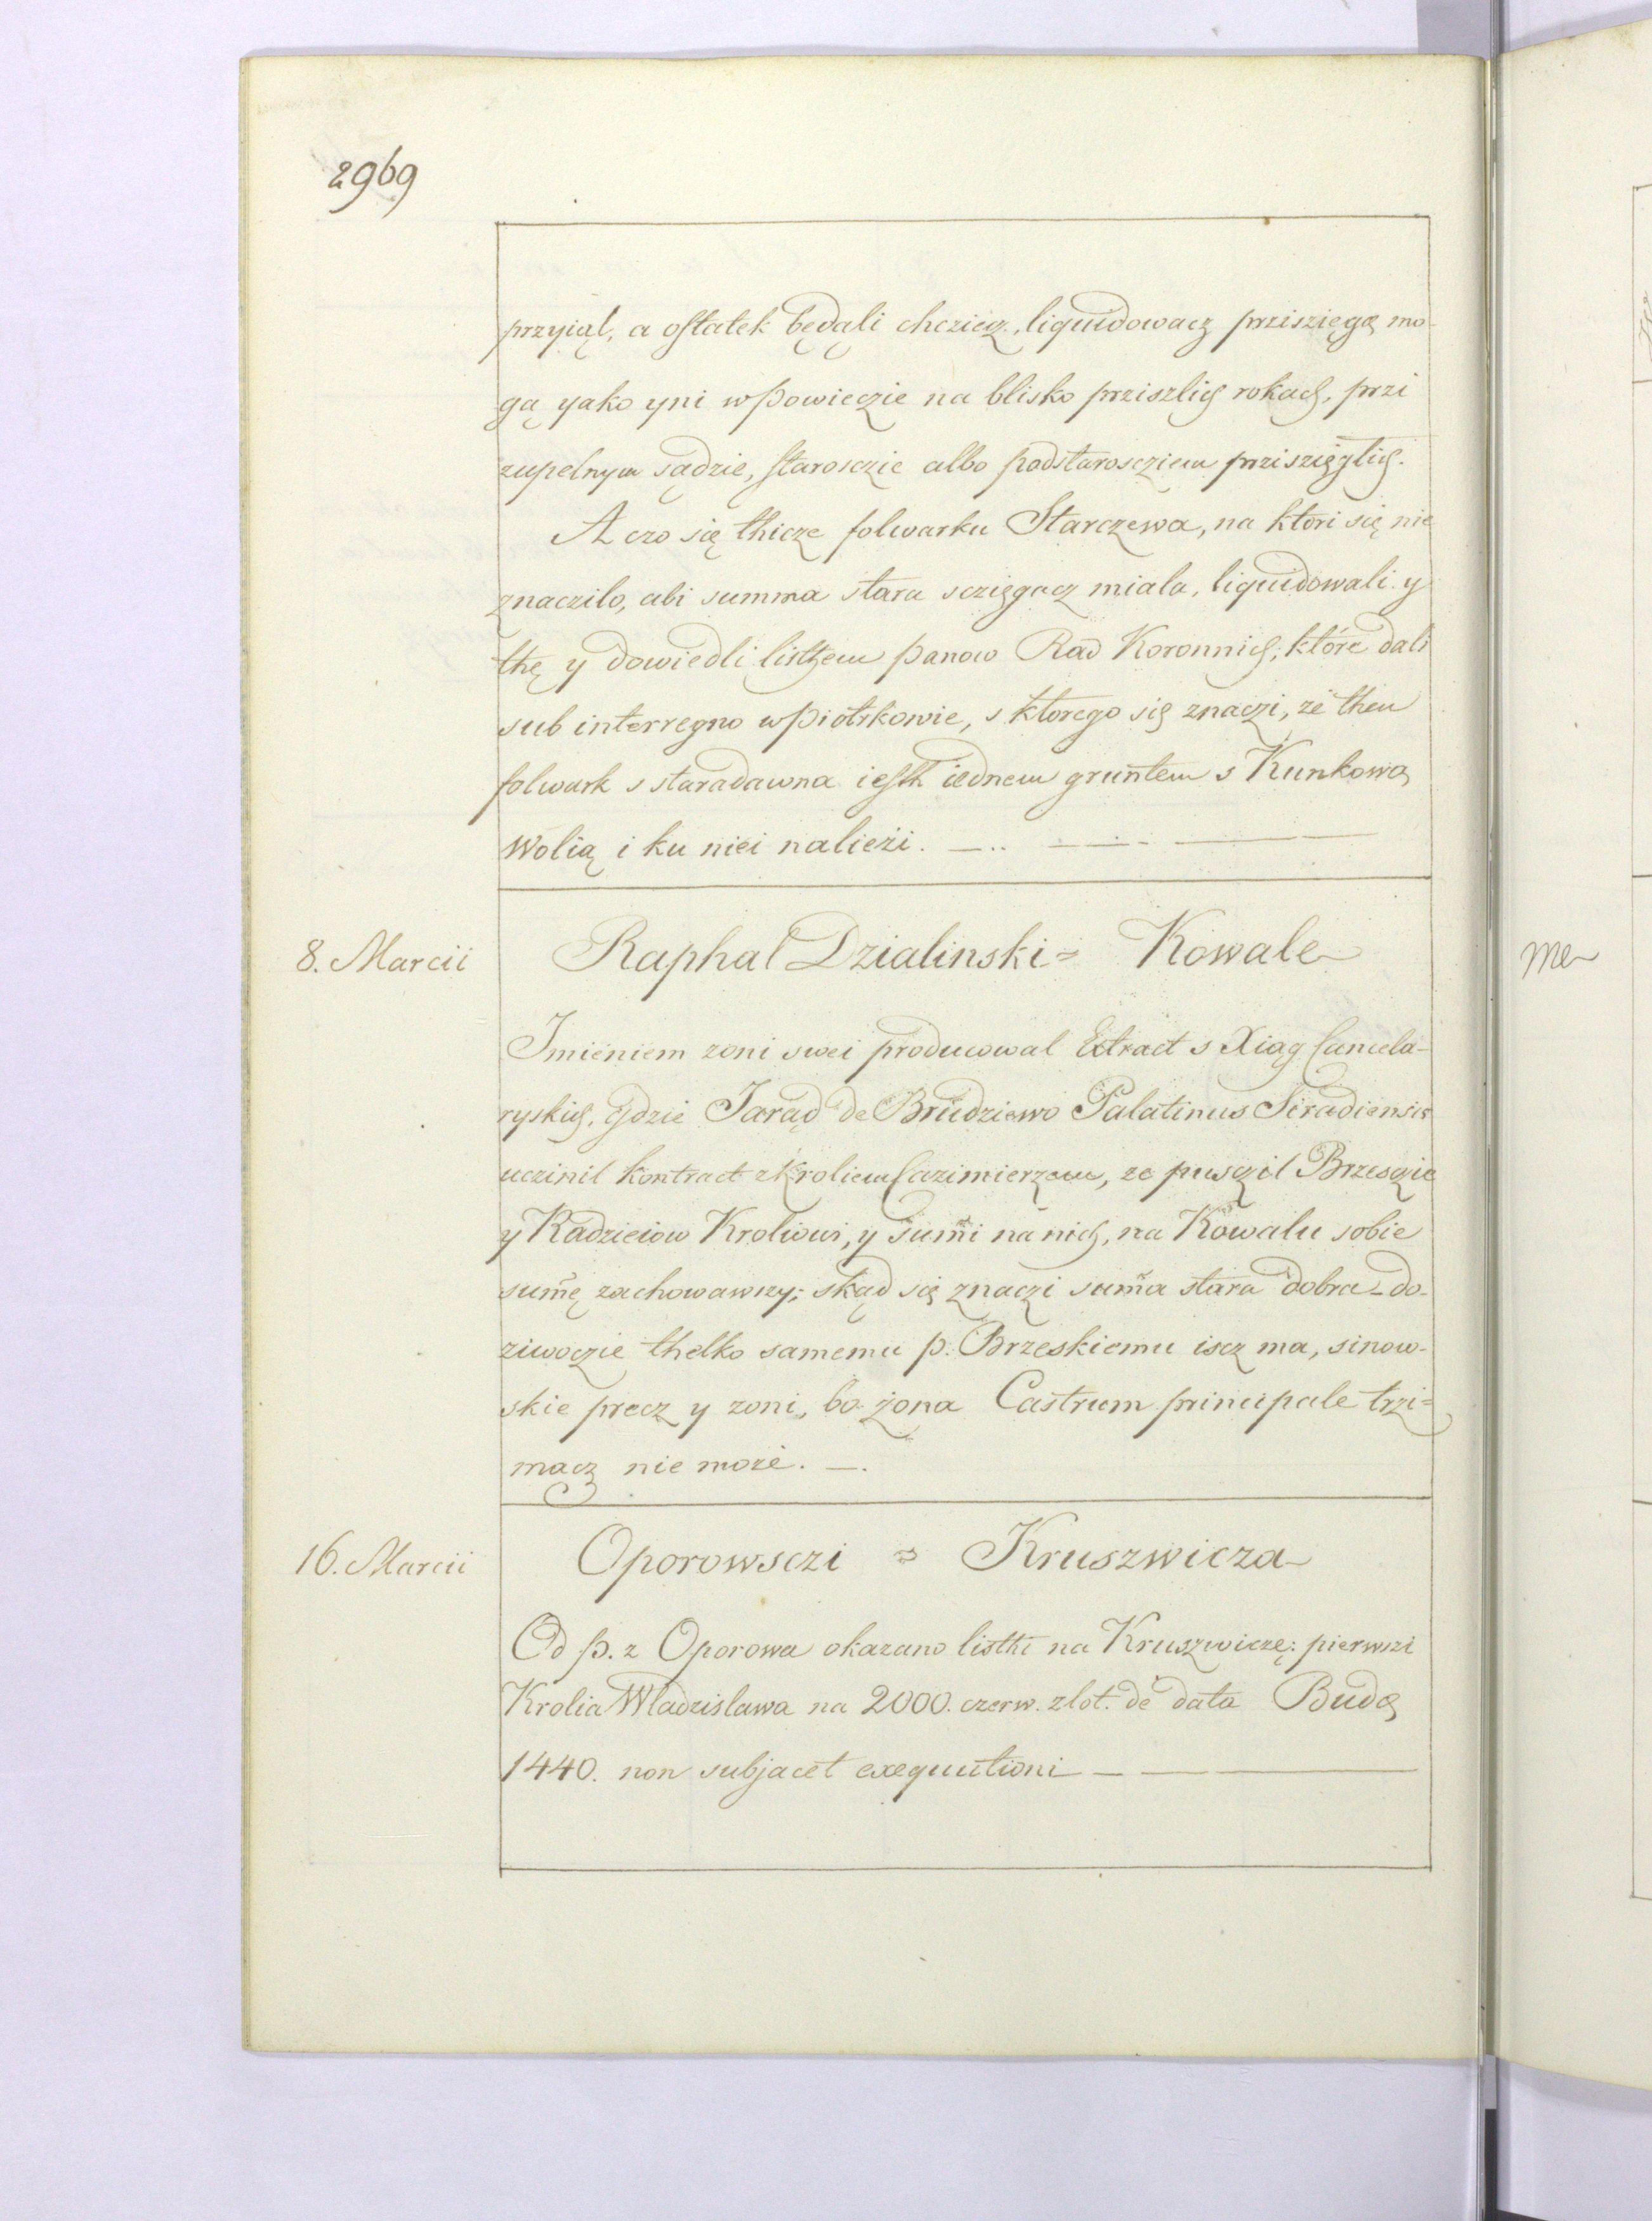 2969
przyiął, a ostatek będąli chcziecz, liquidowacz prziszięgą mo-
gą yako yni w powieczie na blisko prziszlich rokach, przi
zupelnym sądzie, starosczie albo podstarosczięm prziszięglich.
A czo się thicze folwarku Starczewa, na ktori się nie
znacziło, abi summa stara sczięgacz miala, liquidowali y
thę y dowiedli listhem panow Rad Koronnich, które dali
sub interregno w Piotrkowie, s ktorego się znaczi, że then
folwark s staradawna iesth iednem gruntem s Kunkową
Wolią i ku niei należi. —.. —.— —
8. Marcii
Raphal Dzialinski = Kowale
Imieniem zoni swei producowal Extract s Xiąg Cancela-
ryskich, gdzie Jarąd de Brudziewo Palatinus Siradiensis
uczinil kontract z Kroliem Cazimierzem, ze pusczil Brzesczie
y Radzieiow Kroliowi, y sum̃i na nich, na Kowalu sobie
sum̃ę zachowawszy; skąd się znaczi sum̃a stara dobra - do-
ziwoczie thelko samemu p. Brzeskiemu iscz ma, sinow-
skie precz y zoni, bo żona Castrum principale trzi=
macz nie może. —.
16. Marcii
Oporowsczi = Kruszwicza
Od p. z Oporowa okazano listhi na Kruszwiczę: pierwszi
Krolia Wladzislawa na 2000. czerw. zlot. de data Budę
1440. non subjacet exequutioni — — —
me